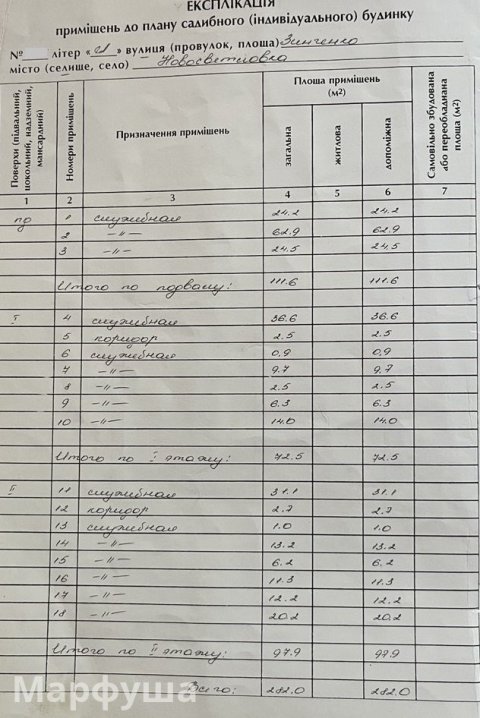 ЕКСПЛІКАЦІЯ
приміщень до плану садибного (індивідуального) будинку
№ літер «А» вулиця (провулок, площа) Зинченко
місто (селище, село) Новосветловка
Поверхи (підвальний, цокольний, надземний, мансардний) Номери приміщень Призначення приміщень Площа приміщень (м2) загальна житлова допоміжна Самовільно збудована або переобладнана площа (м2)
1 2 3 4 5 6 7
пд 1 служебная 24.2 24.2
2 —"— 62.9 62.9
3 —"— 24.5 24.5
Итого по подвалу: 111.6 111.6
I 4 служебная 36.6 36.6
5 коридор 2.5 2.5
6 служебная 0,9 0,9
7 —"— 9.7 9.7
8 —"— 2.5 2.5
9 —"— 6.3 6.3
10 —"— 14.0 14.0
Итого по I этажу: 72.5 72.5
II 11 служебная 31.1 31.1
12 коридор 2.7 2.7
13 служебная 1.0 1.0
14 —"— 13.2 13.2
15 —"— 6.2 6.2
16 —"— 11.3 11.3
17 —"— 12.2 12.2
18 —"— 20.2 20.2
Итого по II этажу: 97.9 97.9
Всего: 282.0 282.0
Марфуша